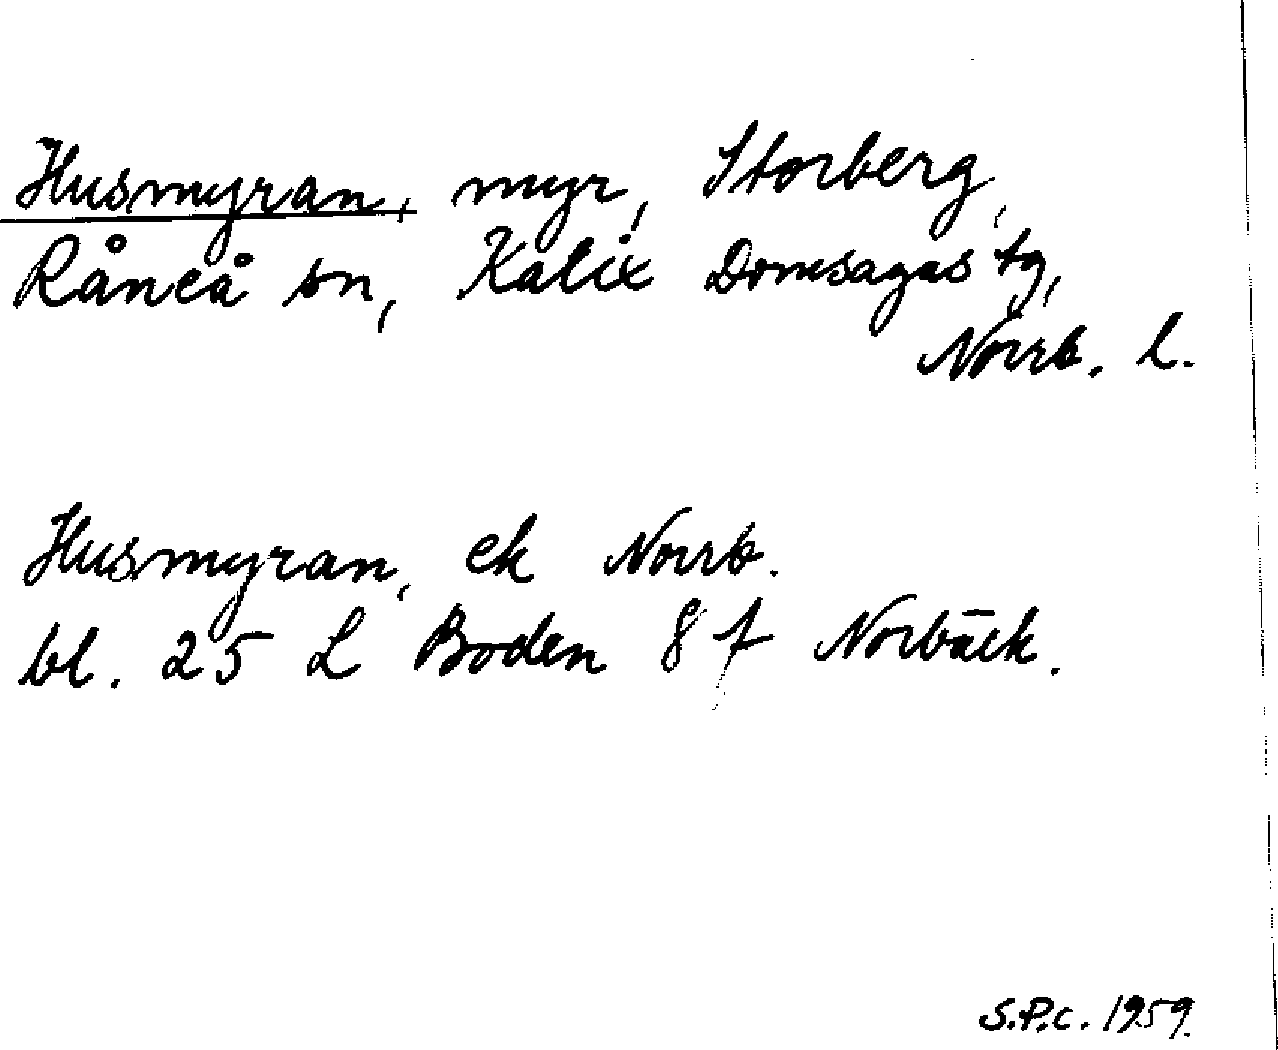 Husmyran, myr, Storberg,
Råneå sn, Kalix Domsagas tg,
Norrb. l.
Husmyran, ek Norrb.
bl. 25 L Boden 8 f Norbäck.
S.P.C. 1959.